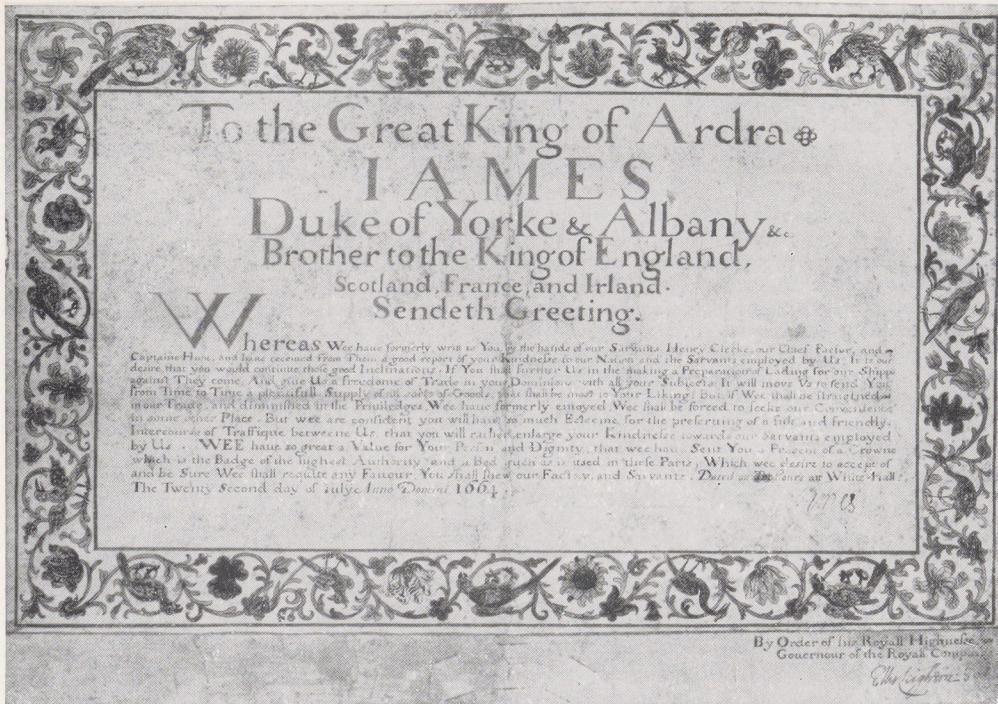 To the Great King of Ardra
IAMES,
Duke of Yorke & Albany &c.
Brother to the King of England,
Scotland, France, and Irland.
Sendeth Greeting.
Whereas Wee haue formerly writt to You, by the hands of our Sarvants Henry Clerke, our Chief Factor, and
Captaine Hunt, and haue receiued From Them a good report of your Kindnesse to our Nation and the Sarvants employed by Us. It is our
desire that you would continue those good Inclinations. If You shall further Us in the making a Preparation of Lading for our Shipps
against They come, And giue Us a freedome of Trade in your Dominions with all your Subjects. It will move Us to send You
from Time to Time a plentifull Supply of all sorts of Goods, that shall be most to Your Liking; But if Wee shall be straigtned
in our Trade, and diminished in the Priuiledges Wee haue formerly enioyed, Wee shall be forced to seeke our Convenience
in some other Place. But wee are confident you will haue so much Esteeme for the preseruing of a full and friendly
Intercourse of Traffique betweene Us, that you will rather enlarge your Kindnesse towards our Sarvants employed
by Us. WEE haue so great a Value for Your Person and Dignity, that wee haue Sent You a Present of a Crowne
which is the Badge of the highest Authority and a Bed such as is used in these Parts, Which wee desire to accept of
and be Sure Wee shall requite any Fauour You shall shew our Factors, and Sarvants. Dated at White-Hall,
The Twenty Second day of Iulye Anno Domini 1664.
By Order of his Royall Highnesse
Gouernour of the Royall Compa